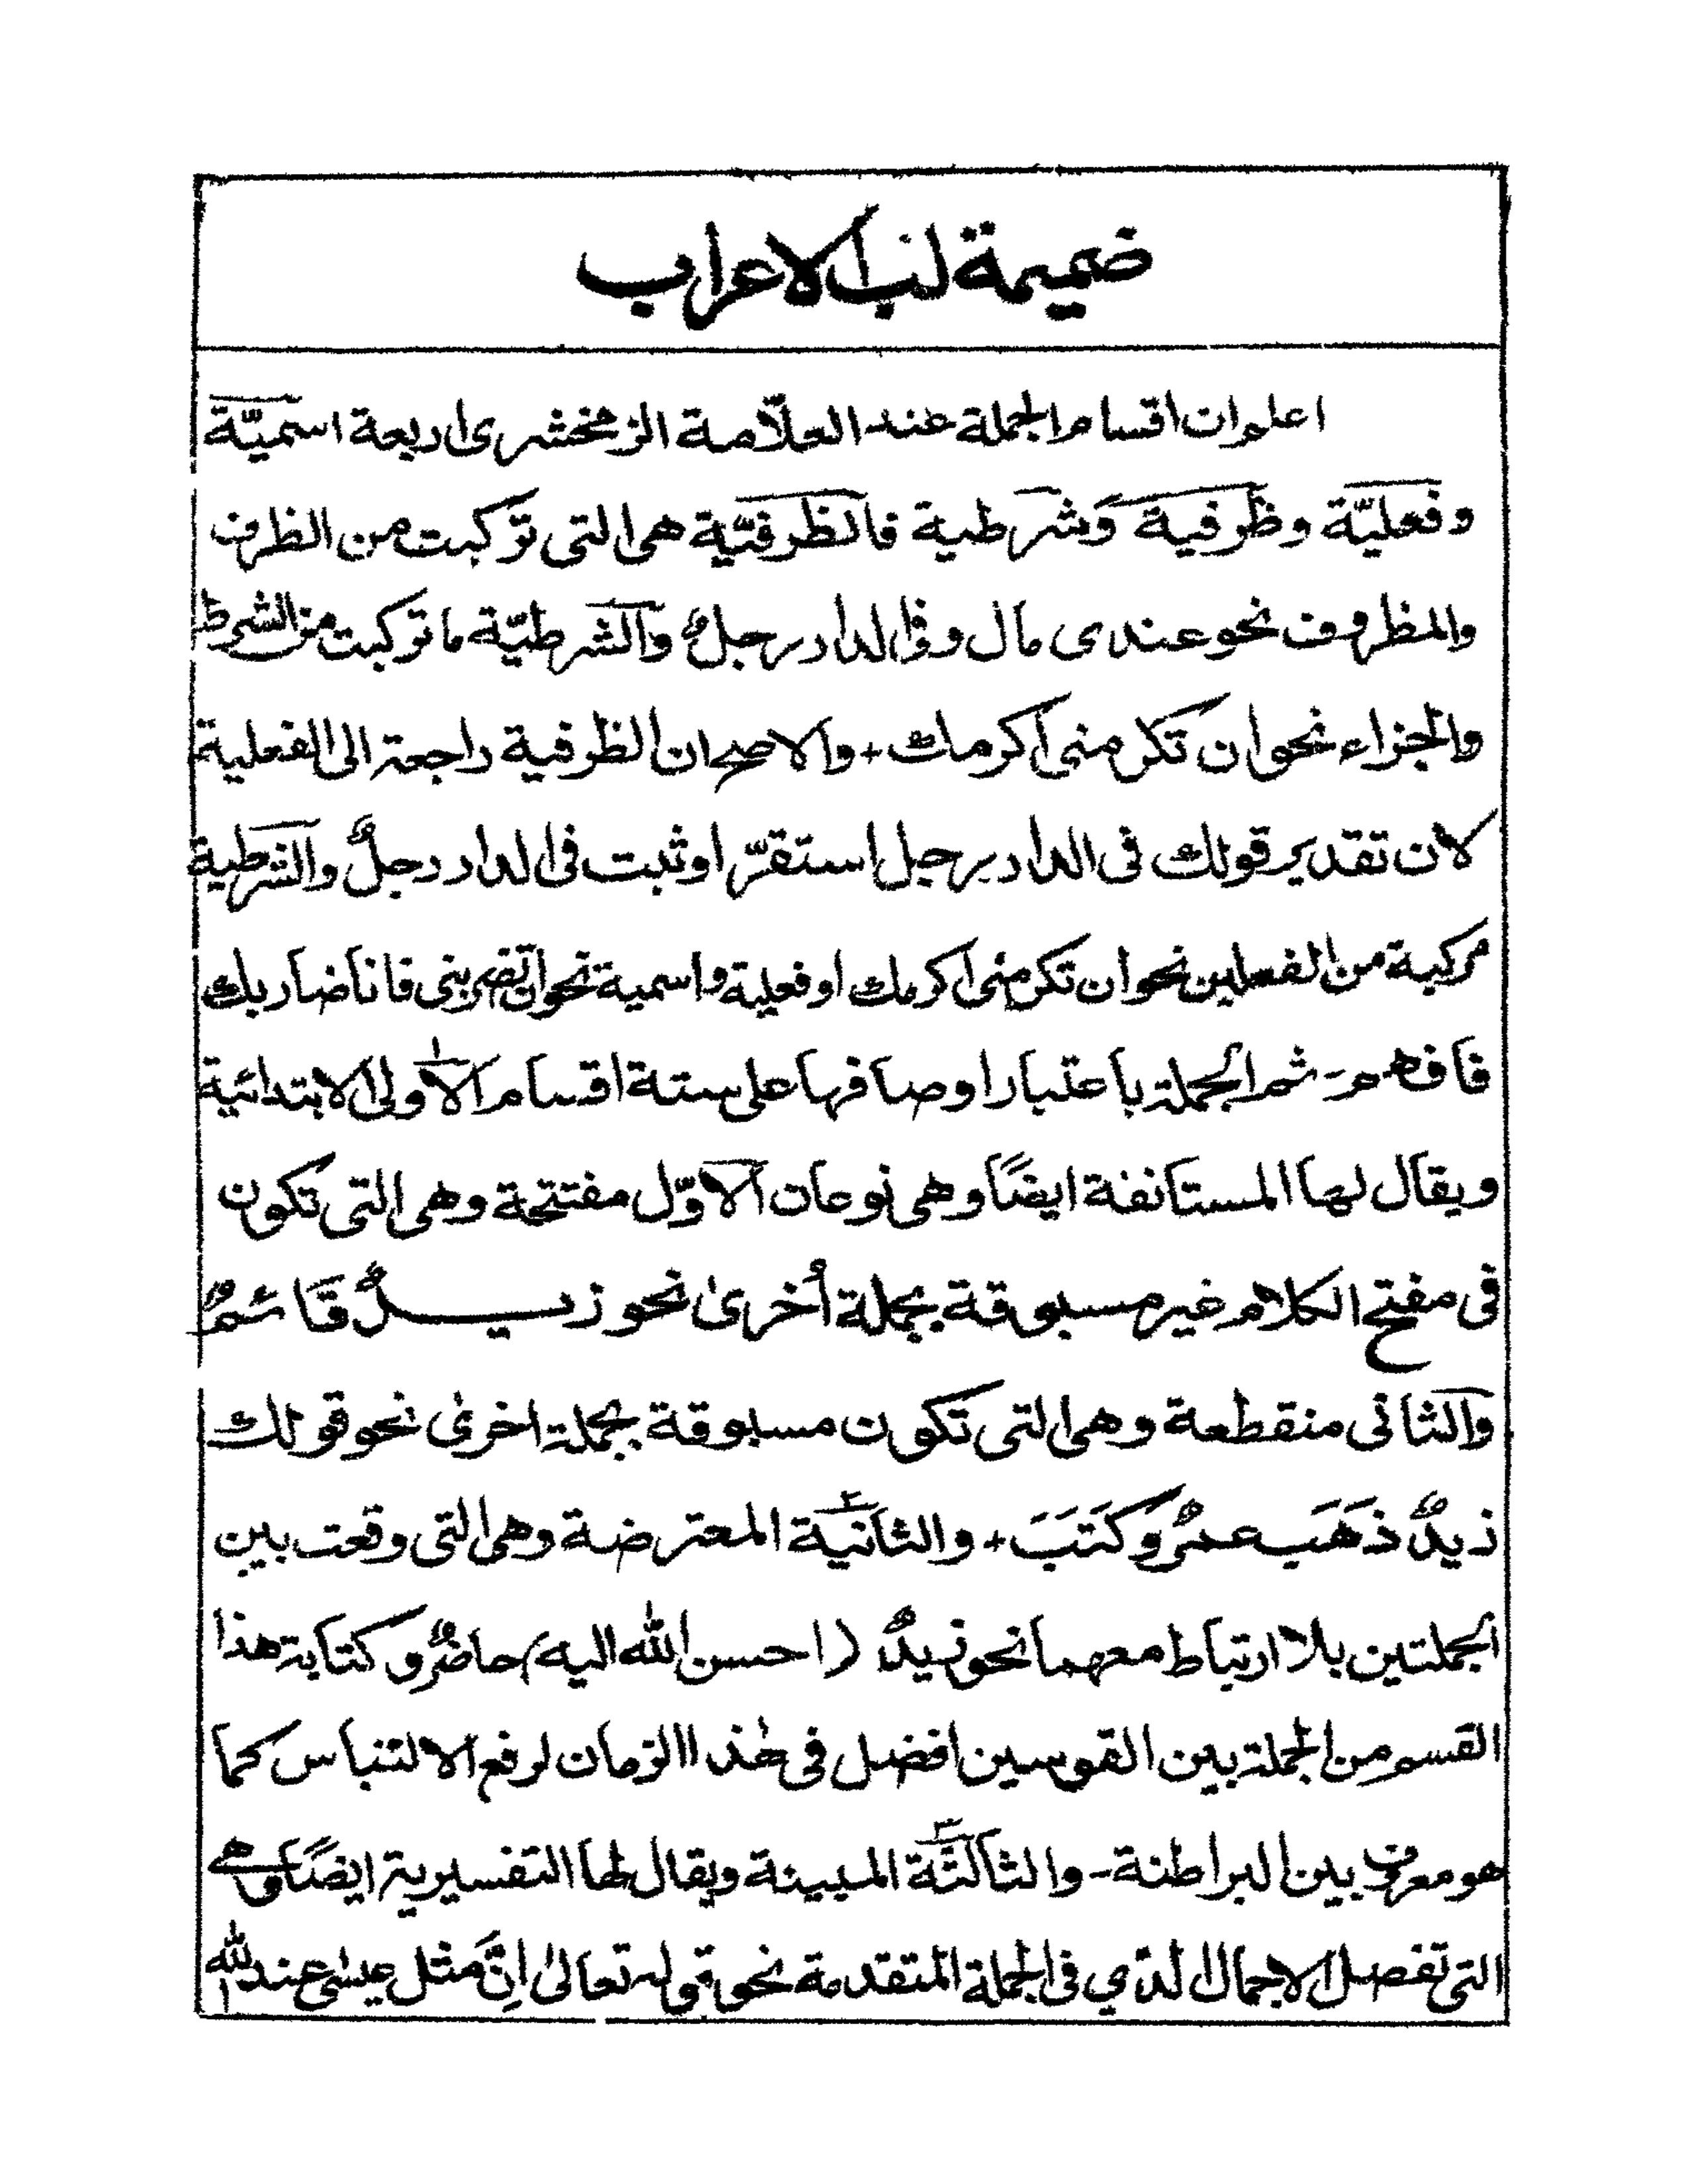 ضميمة لب الاعراب
اعلم ان اقسام الجملة عند العلّامة الزمخشرى اربعة اسميّة
وفعليّة وظرفية وشرطية فالظرفيّة هى التى تركبت من الظرف
والمظروف نحو عندى مال وفى الدار رجلٌ والشرطيّة ما تركبت من الشرط
والجزاء نحو ان تكرمنى اكرمك + والاصح ان الظرفية راجعة الى الفعلية
لان تقدير قولك فى الدار رجل استقرّ او ثبت فى الدار رجلٌ والشرطية
مركبة من الفعلين نحو ان تكرمنى اكرمك او فعلية واسمية نحو ان تضربنى فانا ضاربك
فافهم - ثم الجملة باعتبار اوصافها على ستة اقسام الاولى الابتدائية
ويقال لها المستانفة ايضًا وهى نوعان الاوّل مفتتحة وهى التى تكون
فى مفتح الكلام غير مسبوقة بجملة أخرىٰ نحو زيدٌ قَائمٌ
والثانى منقطعة وهى التى تكون مسبوقة بجملة اخرىٰ نحو قولك
زيدٌ ذَهَب عمرٌو كَتَبَ + والثانية ٢ المعترضة وهى التى وقعت بين
الجملتين بلا ارتباط معهما نحو زيدٌ (احسن الله اليه) حاضرٌ وكتابة هذا
القسم من الجملة بين القوسين افضل فى هٰذا الزمان لرفع الالتباس كما
هو معروف بين البراطنة - والثالثة ٣ المبينة ويقال لها التفسيرية ايضًا وهى
التى تفصل الاجمال الذي فى الجملة المتقدمة نحو قوله تعالىٰ اِنَّ مثل عيسٰى عند الله